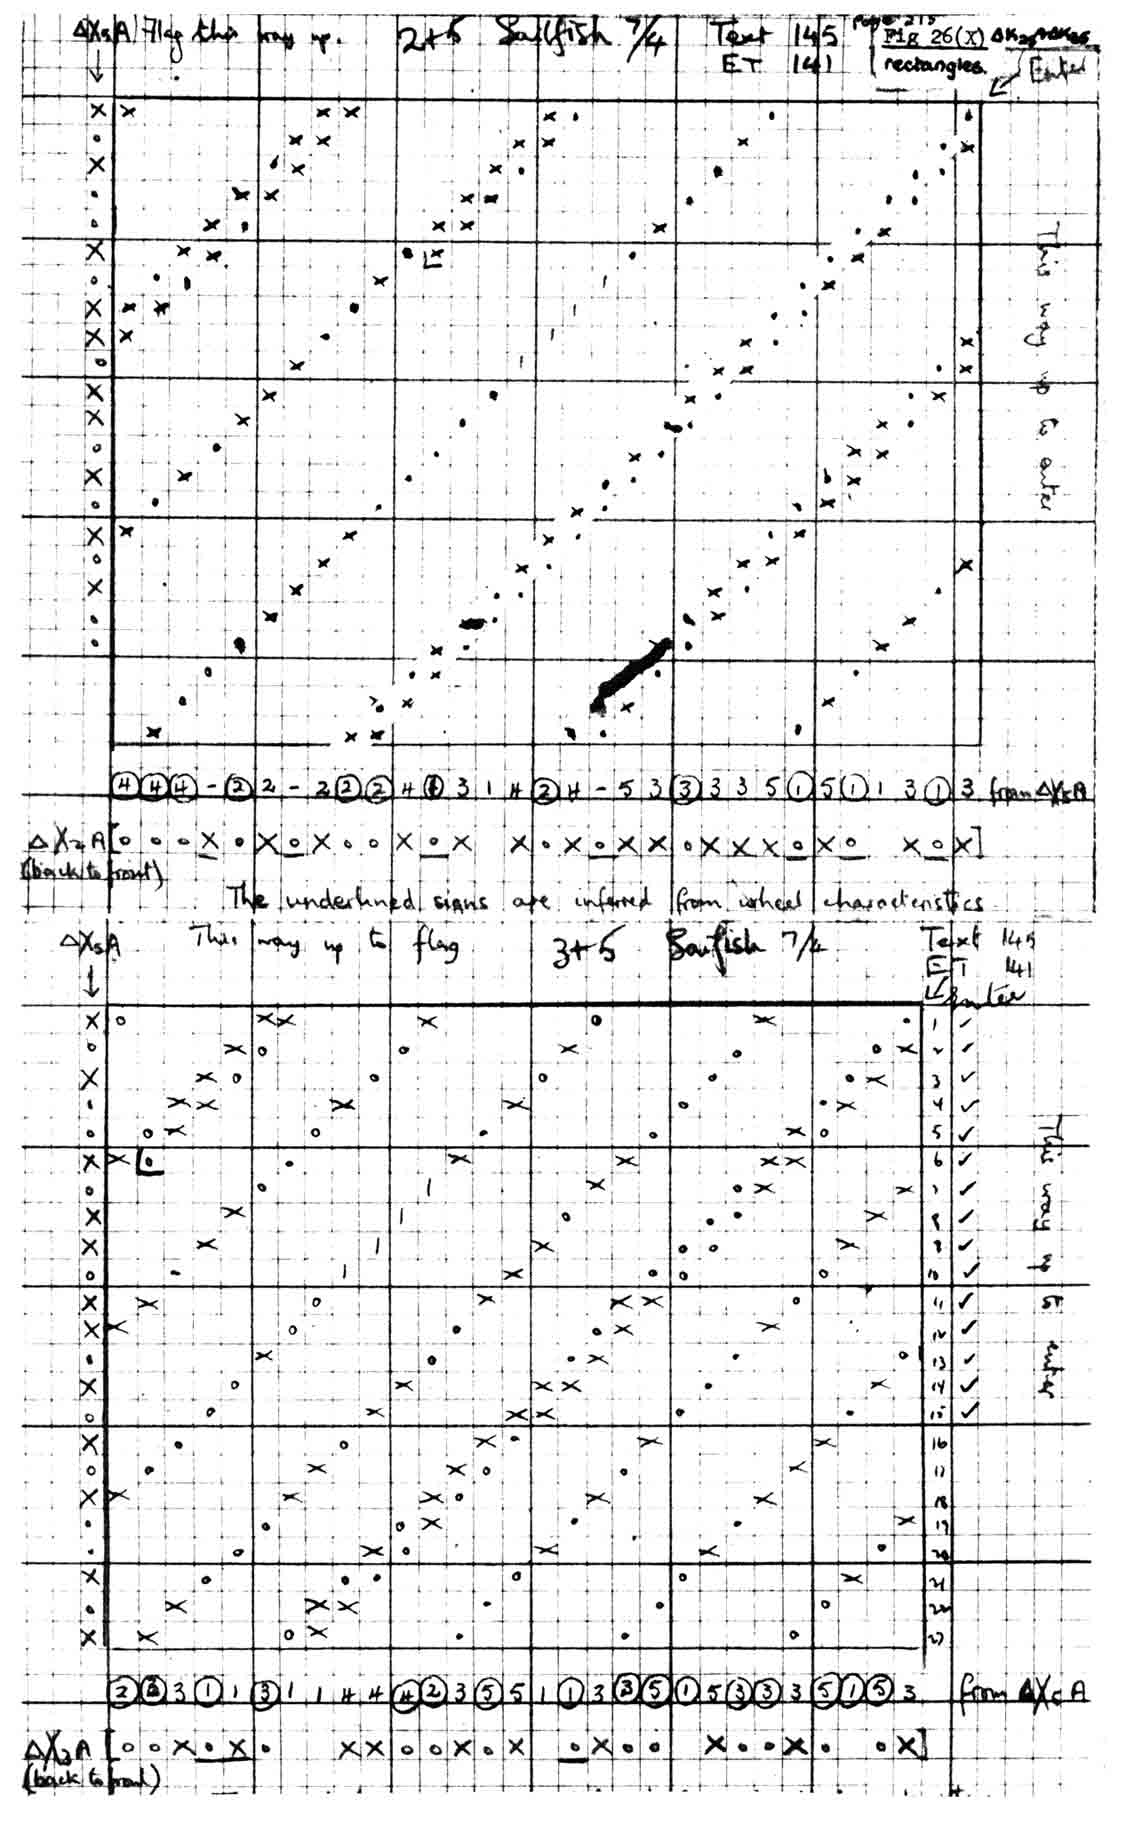 ΔX₅A Flag this way up. 2+5 Sailfish 7/4 Text 145 page 215 Fig 26(X)
ET 141 rectangles. Enter
This way up to enter
④ ④ ④ - ② 2 - 2 ② ② 4 ① 3 1 4 ② 4 - 5 3 ③ 3 3 5 ① 5 ① 1 3 ① 3 from ΔX₅A
ΔX₂A [o o o X o X o X o o X o X X o X o X X o X X X o X o X o X]
(back to front)
The underlined signs are inferred from wheel characteristics
ΔX₅A This way up to flag 3+5 Sailfish 7/4 Text 145
ET 141
Enter
1 ✓
2 ✓
3 ✓
4 ✓
5 ✓
6 ✓
7 ✓
8 ✓
9 ✓
10 ✓
11 ✓
12 ✓
13 ✓
14 ✓
15 ✓
16
17
18
19
20
21
22
23
This way up to enter
② ③ 3 ① 1 ③ 1 1 4 4 ④ ② 3 ⑤ 5 1 ① 3 ③ ⑤ ① 5 ③ ③ 3 ⑤ 1 ⑤ 3 from ΔX₅A
ΔX₃A [o o X o X o X X o o X o X o X o o X o o X o o X]
(back to front)